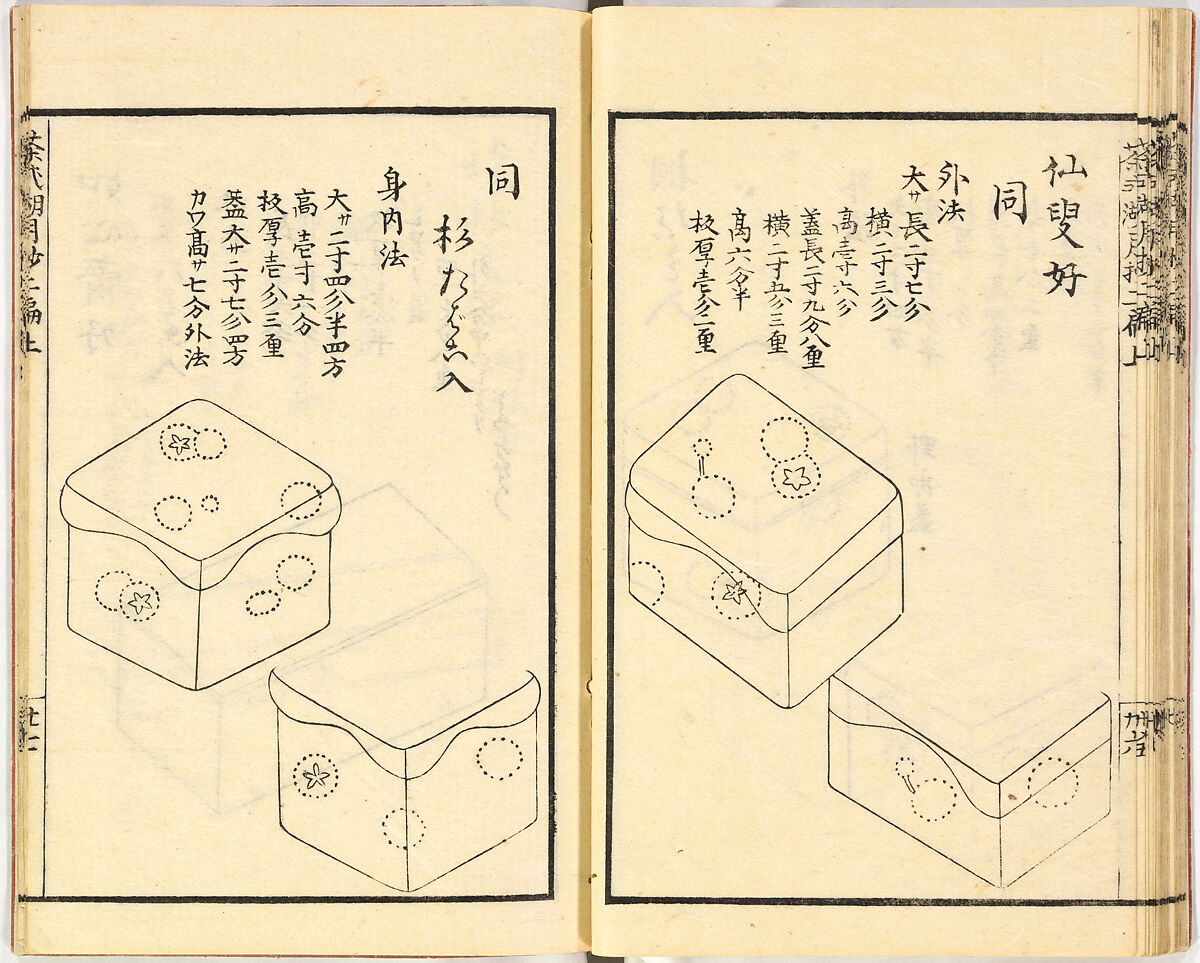 仙叟好
同
外法
大サ長二寸七分
横二寸三分
高壱寸六分
蓋長二寸九分八厘
横二寸五分三厘
高六分半
板厚壱分二厘
同
杉たばこ入
身内法
大サ二寸四分半四方
高壱寸六分
板厚壱分三厘
蓋大サ二寸七分四方
カウ高サ七分外法
茶式湖月抄二編上
廿七